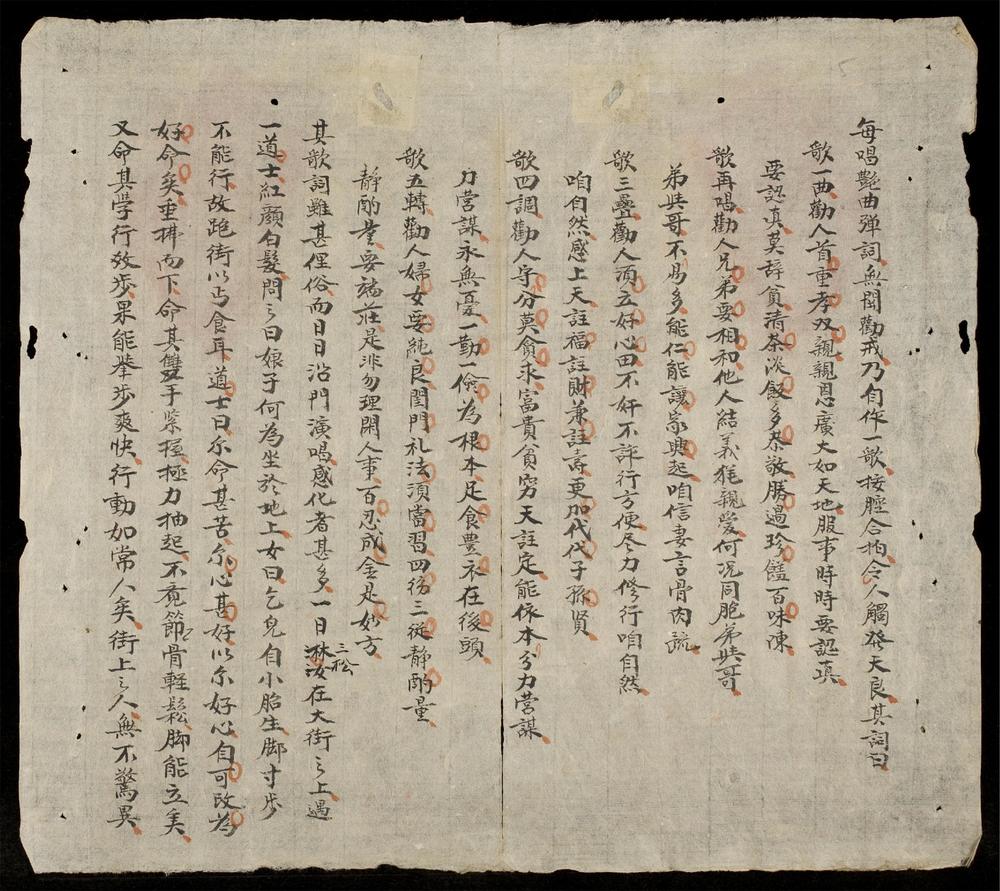 每唱艷曲彈詞無関勸戒乃自作一歌按腔合拍令人觸發天良其詞曰
歌一曲勸人首重孝双親親恩廣大如天地服事時時要認真
要認真莫辞貧清茶淡飯多恭敬勝過珍饈百味陳
歌再唱勸人兄弟要相和他人結義猶親愛何况同胞弟與哥
弟與哥不易多能仁能讓家興起咱信妻言骨肉疏
歌三疊勸人須立好心田不奸不詐行方便尽力修行咱自然
咱自然感上天註福註財兼註壽更加代代子孫賢
歌四調勸人守分莫貪求富貴貧穷天註定能依本分力營謀
力營謀永無憂一勤一儉為根本足食豊衣在後頭
歌五轉勸人婦女要純良閨門礼法須當習四徳三從靜酌量
靜酌量要端莊是非勿理閑人事百忍成金是妙方
其歌詞雖甚俚俗而日日沿門演唱感化者甚多一日林三松汝在大街之上遇
一道士紅顏白髮問之曰娘子何為坐於地上女曰乞兒自小胎生脚寸步
不能行故跑街以丐食耳道士曰尔命甚苦尔心甚好以尔好心自可改為
好命矣垂拂而下命其雙手紧握極力抽起不覔節々骨軽鬆脚能立矣
又命其學行效步果能举步爽快行動如常人矣街上之人無不驚異